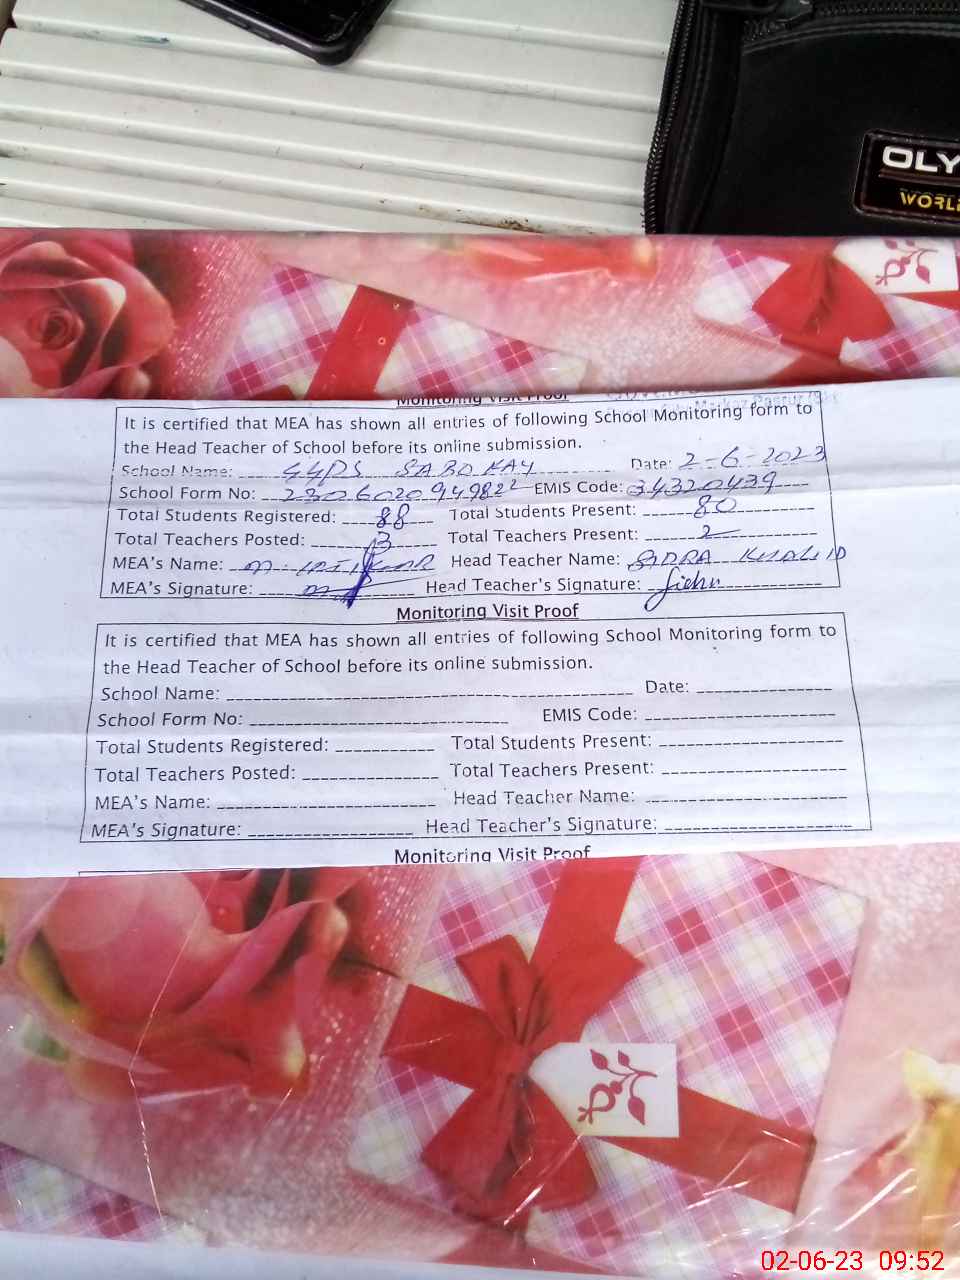 OLY
WORL
Monitoring Visit Proof
It is certified that MEA has shown all entries of following School Monitoring form to
the Head Teacher of School before its online submission.
School Name: GGPS SABO KAY Date: 2-6-2023
School Form No: EMIS Code: 34320439
Total Students Registered: 88 Total Students Present: 80
Total Teachers Posted: 3 Total Teachers Present: 2
MEA's Name: Head Teacher Name: SIDRA KHALID
MEA's Signature: Head Teacher's Signature:
Monitoring Visit Proof
It is certified that MEA has shown all entries of following School Monitoring form to
the Head Teacher of School before its online submission.
School Name: Date:
School Form No: EMIS Code:
Total Students Registered: Total Students Present:
Total Teachers Posted: Total Teachers Present:
MEA's Name: Head Teacher Name:
MEA's Signature: Head Teacher's Signature:
Monitoring Visit Proof
02-06-23 09:52